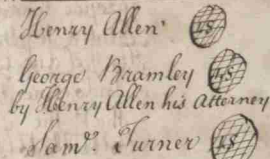 Henry Allen LS
George Bramley LS
by Henry Allen his Attorney
Sam.^r Turner LS